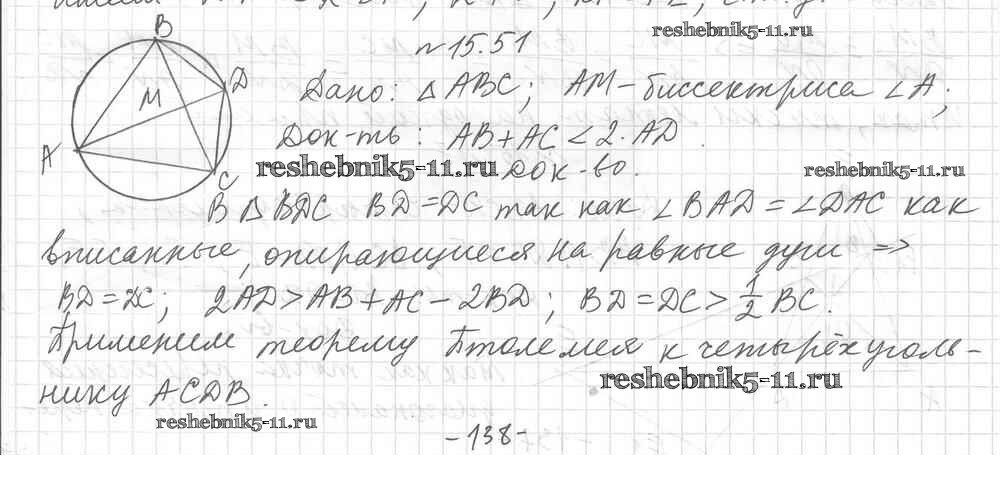 reshebnik5-11.ru
№ 15.51
B
D
M
A
C
Дано: △ ABC; AM - биссектриса ∠ A;
Док-ть: AB + AC < 2·AD.
reshebnik5-11.ru
Док-во.
reshebnik5-11.ru
В △ BDC BD = DC так как ∠ BAD = ∠ DAC как
вписанные, опирающиеся на равные дуги =>
BD = DC; 2AD > AB + AC - 2BD; BD = DC > 1/2 BC.
Применим теорему Птолемея к четырёхуголь-
reshebnik5-11.ru
нику ACDB.
reshebnik5-11.ru
- 138 -